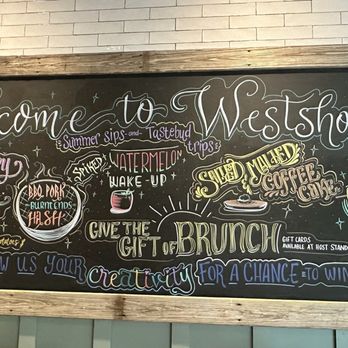 come to Westsho
Summer sips and Tastebud
trips
BBQ PORK
BURNT ENDS
HASH
SPIKED WATERMELON
WAKE-UP
SALTED MALTED
COFFEE
CAKE
GIVE THE
GIFT OF BRUNCH
GIFT CARDS
AVAILABLE AT HOST STAND
OW US YOUR Creativity FOR A CHANCE TO WIN